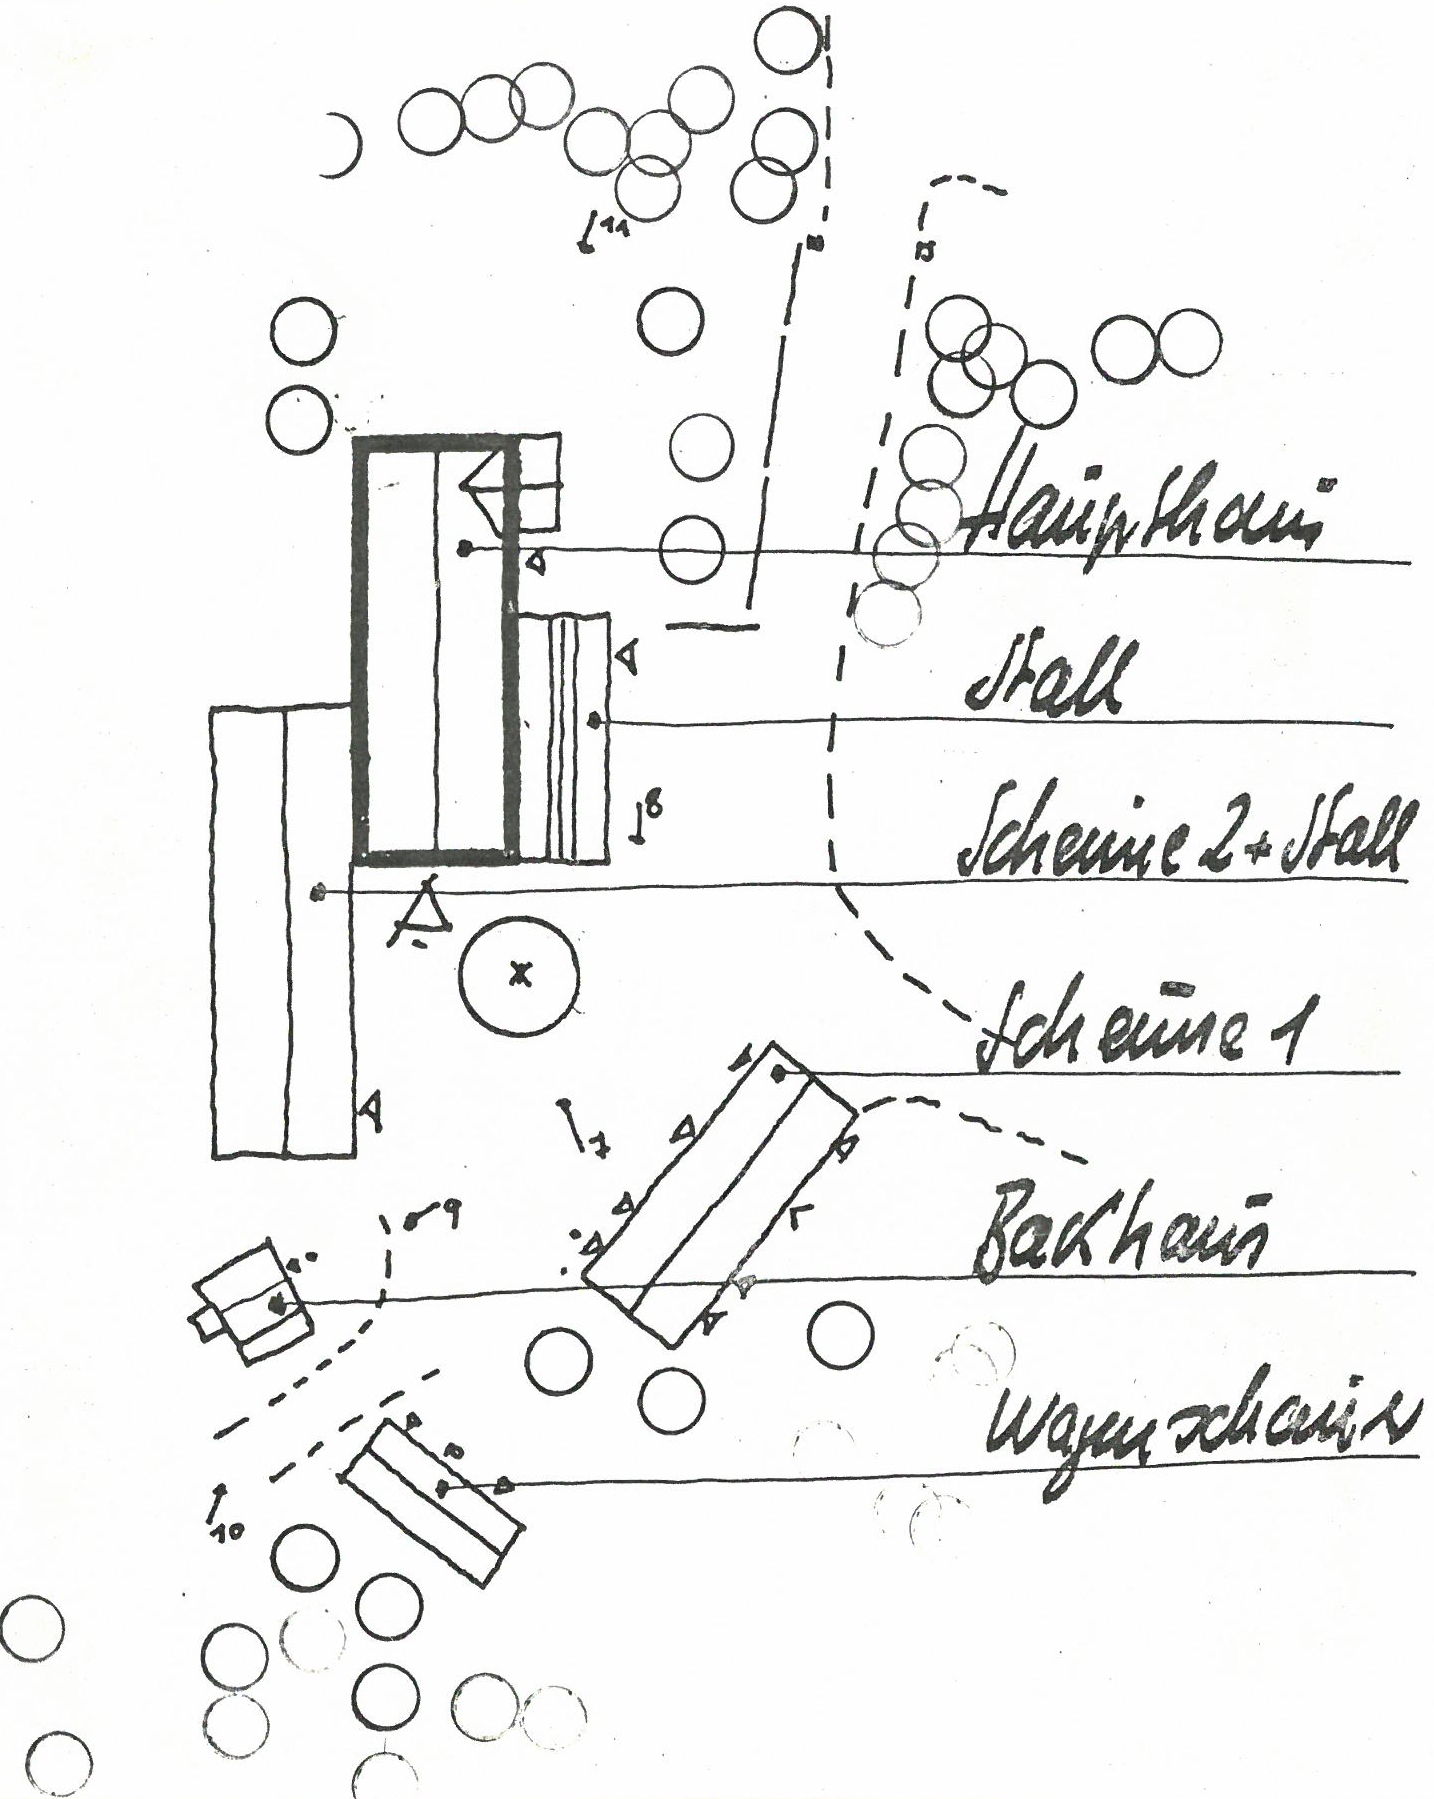 11
Haupthaus
Stall
8
Scheune 2 + Stall
Scheune 1
7
Backhaus
9
Wagenschauer
10